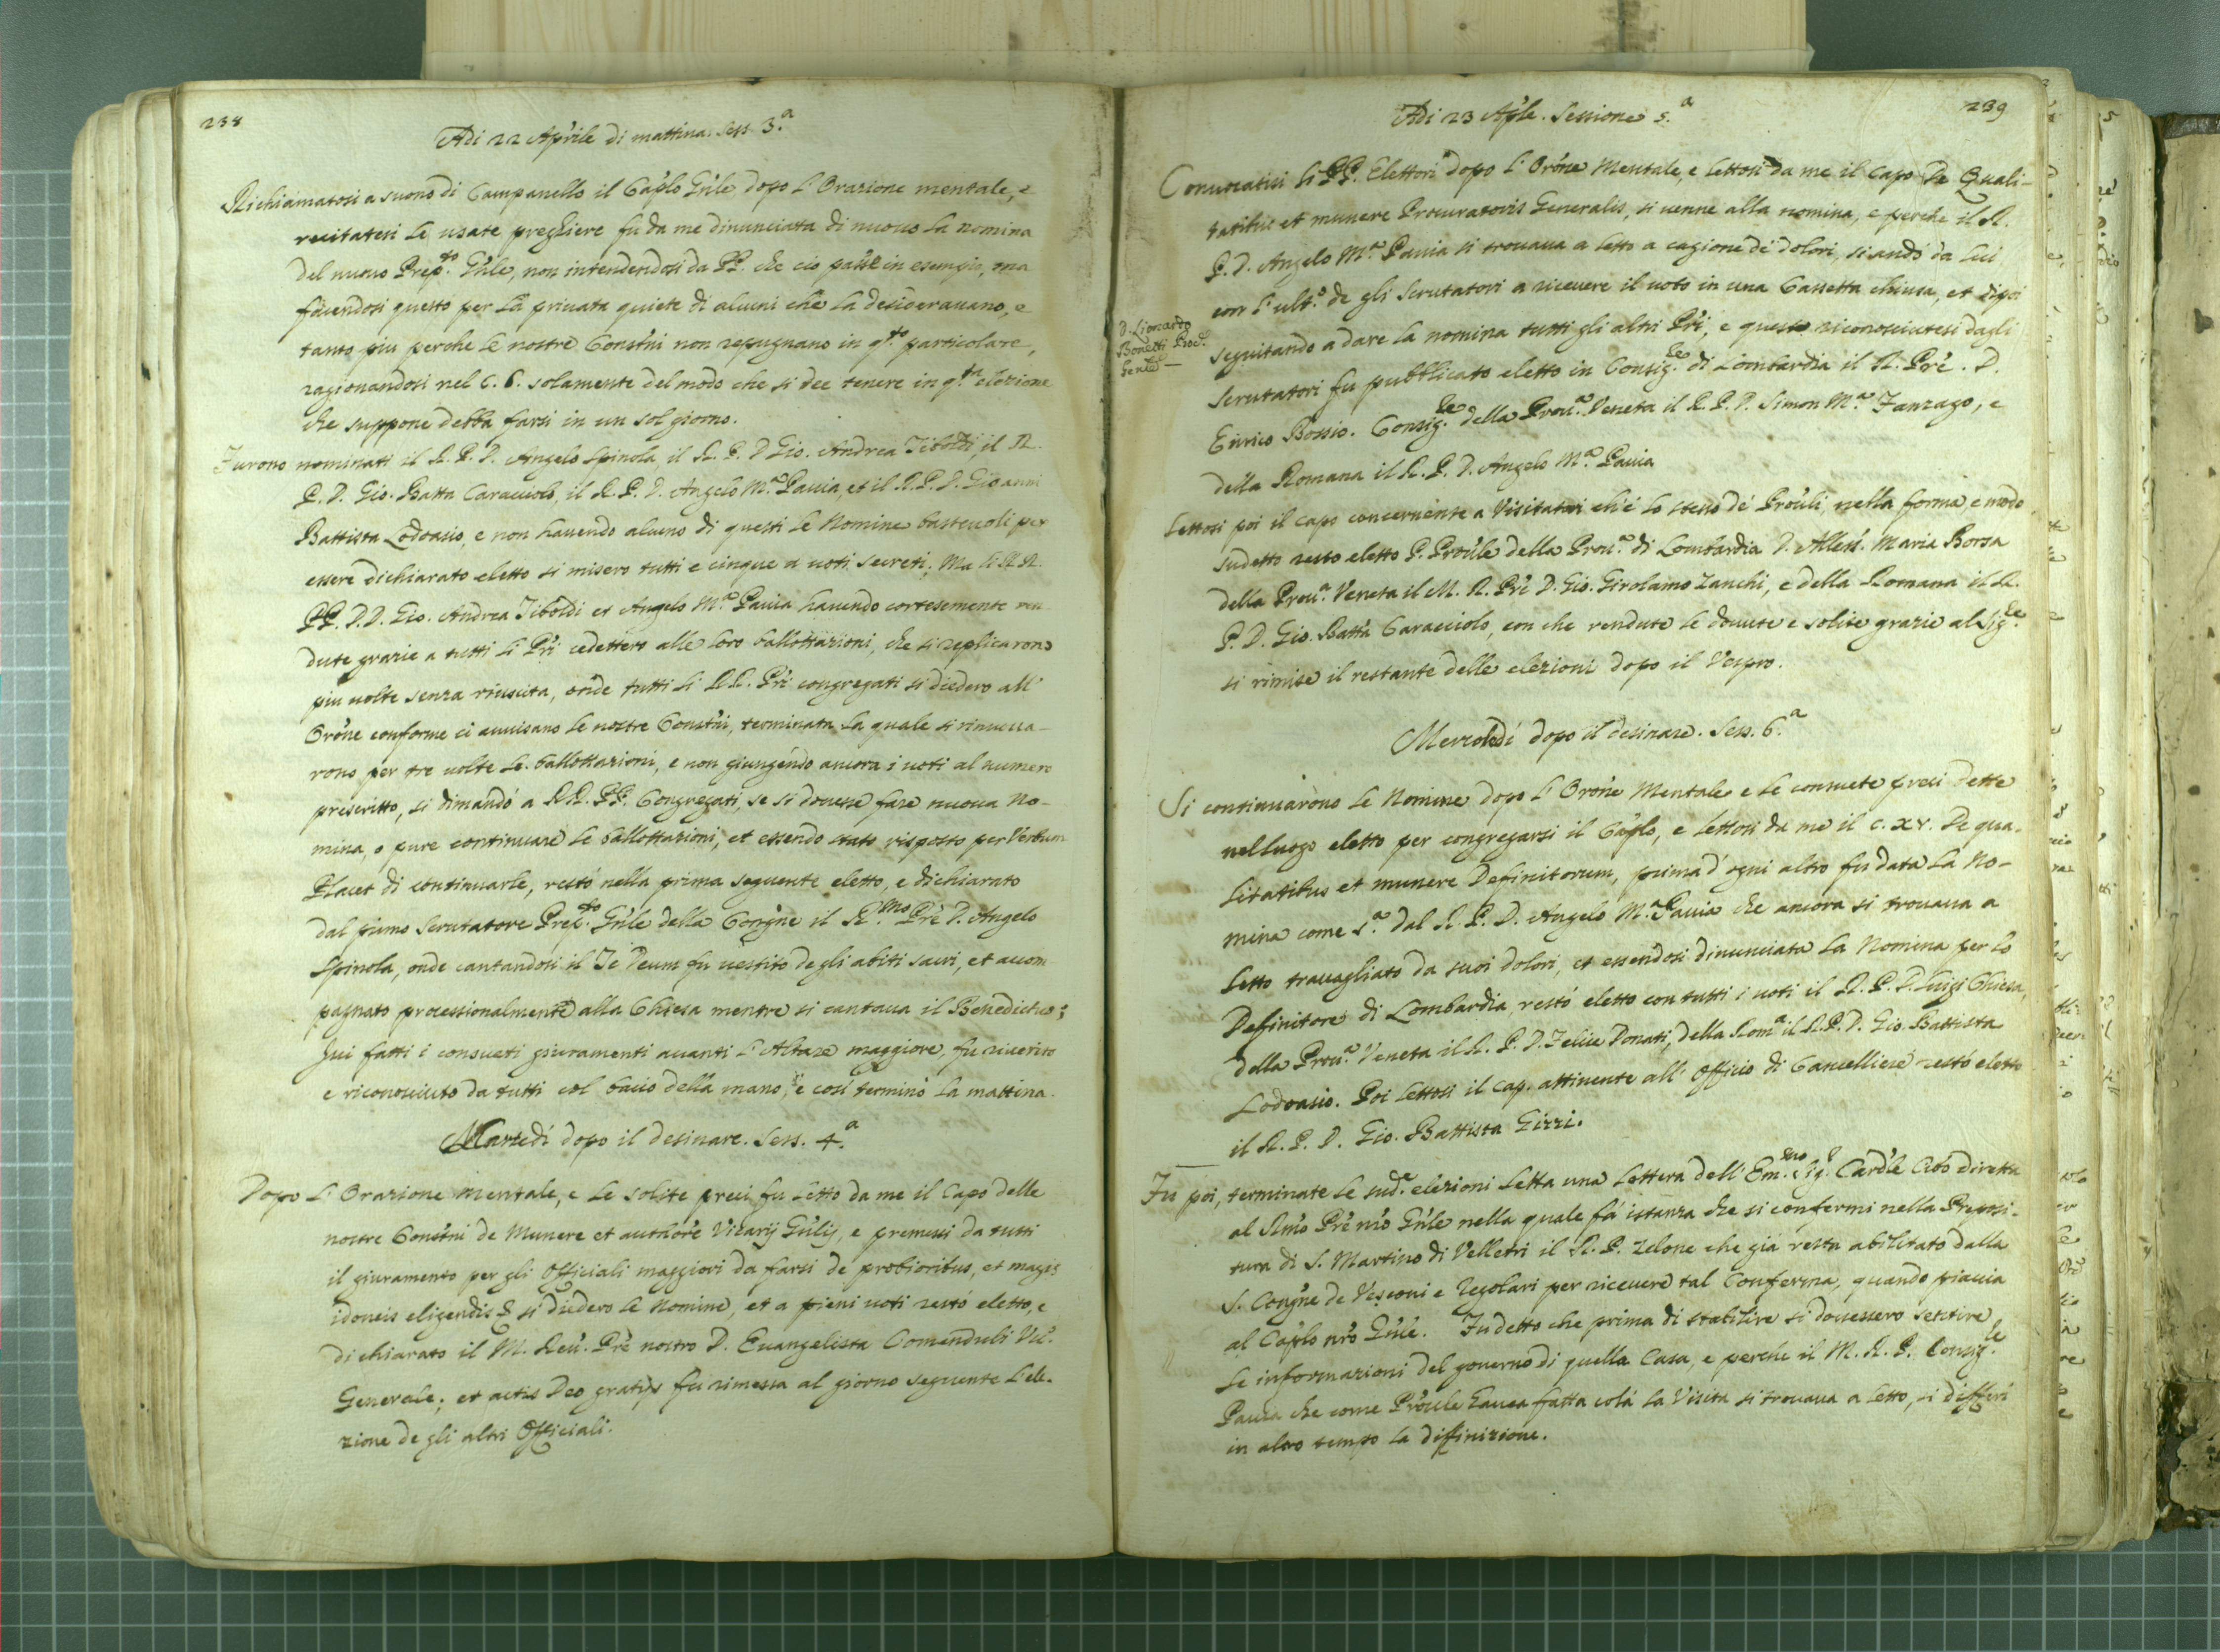 238
Adi 22 Aprile di mattina. Sess. 3.ª
Richiamatosi a suono di Campanello il Cap̃lo Gñle dopo l'Orazione mentale, e
recitatesi le usate preghiere fu da me dinunciata di nuouo la nomina
del nuouo Prep.to Gñle, non intendendosi da PP. che ciò passi in esempio, ma
facendosi questo per la priuata quiete di alcuni che la desiderauano, e
tanto piu perche le nostre Constñi non repugnano in q.to particolare,
ragionandosi nel C. 6. solamente del modo che si dee tenere in q.ta elezione
che suppone debba farsi in un sol giorno.
Furono nominati il R. P. D. Angelo Spinola, il R. P. D Gio. Andrea Tiboldi, il R.
P. D. Gio. Batta Caracciolo, il R. P. D. Angelo M.ª Pauia, et il R. P. D. Giouanni
Battista Lodoasio, e non hauendo alcuno di questi le Nomine basteuoli per
essere dichiarato eletto si misero tutti e cinque a uoti secreti; Ma li RR.
PP. D.D. Gio. Andrea Tiboldi et Angelo M.ª Pauia hauendo cortesemente ren
dute grazie a tutti li Pri cedettero alle loro ballottazioni, che si replicarono
piu uolte senza riuscita, onde tutti li RR. Pri congregati si diedero all'
Orõne conforme ci auuisano le nostre Constñi, terminata la quale si rinuoua-
rono per tre uolte le ballottazioni, e non giungendo ancora i uoti al numero
prescritto, si dimandò a RR. PP. Congregati, se si douesse fare nuoua No-
mina, o pure continuare le ballottazioni, et essendo stato risposto per Verbum
Placet di continuarle, restò nella prima seguente eletto, e dichiarato
dal primo Scrutatore Prep.to Gñle della Congñe il R.mo Prẽ D. Angelo
Spinola, onde cantandosi il Te Deum fu uestito degli abiti sacri, et accom
pagnato processionalmente alla Chiesa mentre si cantaua il Benedictus;
Iui fatti i consueti giuramenti auanti l'Altare maggiore, fu riuerito
e riconosciuto da tutti col bacio della mano, e così terminò la mattina.
Martedì dopo il desinare. Sess. 4.ª
Dopo l'Orazione mentale, e le solite preci fu letto da me il Capo delle
nostre Constñi de Munere et authore Vicarij Gñlis, e premessi da tutti
il giuramento per gli Officiali maggiori da farsi de probioribus, et magis
idoneis eligendis si diedero le Nomine, et a pieni uoti restò eletto, e
dichiarato il M. Reu. Prẽ nostro D. Euangelista Comenduli Vic.
Generale; et actis Deo gratijs fu rimessa al giorno seguente l'ele-
zione degli altri Officiali.
239
Adi 23 Aple. Sessione 5.ª
Conuocatisi li PP. Elettori dopo l'Orõne Mentale, e lettosi da me il Capo De Quali-
tatibus et munere Procuratoris Generalis, si uenne alla nomina, e perche il R.
P. D. Angelo M.ª Pauia si trouaua a letto a cagione de' dolori, si andò da lui
con l'ult.º de gli Scrutatori a riceuere il uoto in una Cassetta chiusa, et dipoi
D. Lionardo
Bonetti Proc.
Genle
seguitando a dare la nomina tutti gli altri Pri, e queste riconosciutesi dagli
Scrutatori fu pubblicato eletto in Consig.re di Lombardia il R. Prẽ. D.
Enrico Bossio. Consig.re della Prou.ª Veneta il R. P. D. Simon M.ª Fanzago, e
della Romana il R. P. D. Angelo M.ª Pauia
Lettosi poi il capo concernente a Visitatori ch'è lo stesso de' Prouli, nella forma e modo
sudetto restò eletto P. Proule della Prou.ª di Lombardia D. Alless. Maria Borsa
della Prou.ª Veneta il M. R. Prẽ D. Gio. Girolamo Zanchi, e della Romana il R.
P. D. Gio. Batta Caracciolo, con che rendute le douute e solite grazie al Sig.re
si rimise il restante delle elezioni dopo il Vespro.
Mercoledì dopo il desinare. Sess. 6.ª
Si continuarono le Nomine dopo l'Orõne Mentale e le consuete preci dette
nel luogo eletto per congregarsi il Cap̃lo, e lettosi da me il c. XV. De qua-
litatibus et munere Definitorum, prima d'ogni altro fu data la No-
mina come s.ª dal R. P. D. Angelo M.ª Pauia che ancora si trouaua a
letto trauagliato da suoi dolori, et essendosi dinunciata la Nomina per lo
Definitore di Lombardia restò eletto con tutti i uoti il R. P. D. Luigi Chiesa,
della Prou.ª Veneta il R. P. D. Felice Donati, della Rom.ª il R. P. D. Gio. Battista
Lodoasio. Poi lettosi il cap. attinente all'Officio di Cancelliere restò eletto
il R. P. D. Gio. Battista Gizzi.
Fu poi, terminate le sud.e elezioni letta una lettera dell'Em.mo Sig.r Cardle Cibo diretta
al Rmo Prẽ nro Gñle nella quale fa istanza che si confermi nella Preposi-
tura di S. Martino di Velletri il R. P. Zelone che già resta abilitato dalla
S. Congñe de Vescoui e Regolari per riceuere tal Conferma, quando piaccia
al Cap̃lo nro Gñle. Fu detto che prima di stabilire si douessero sentire
le informazioni del gouerno di quella Casa, e perche il M. R. P. Consig.re
Pauia che come Proule hauea fatta colà la Visita si trouaua a letto, si differì
in altro tempo la diffinizione.